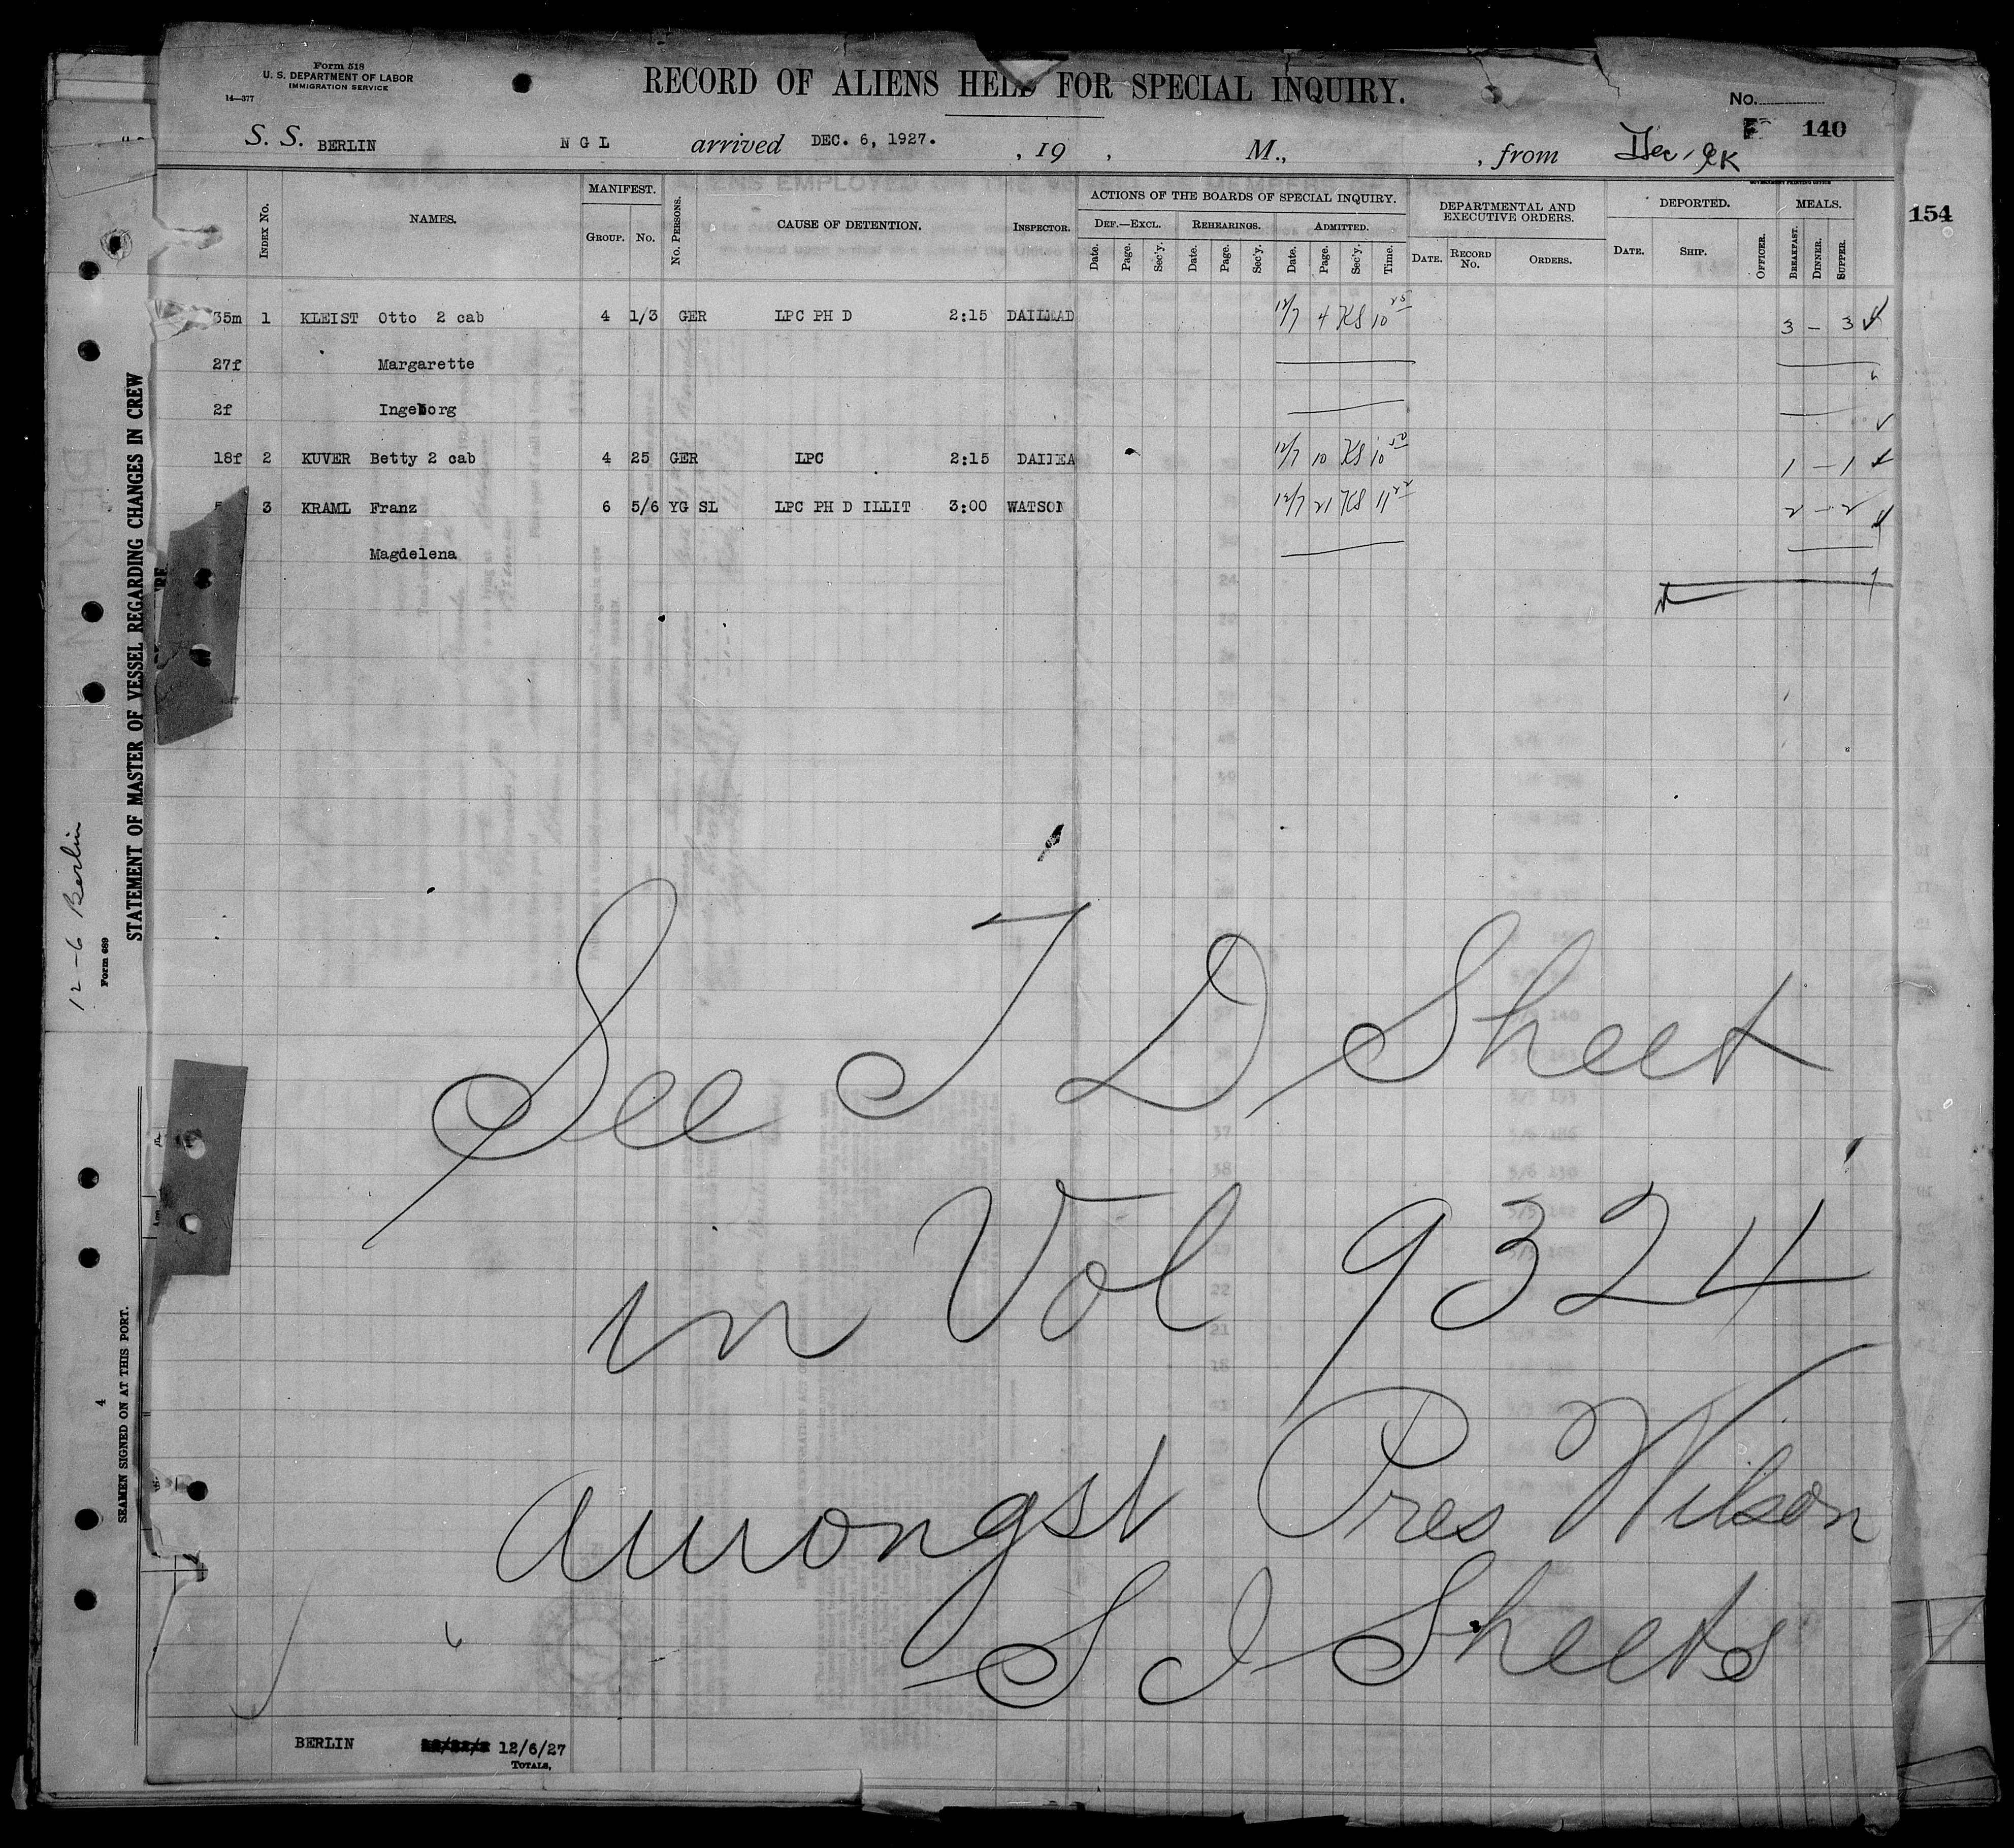 Form 518
U. S. DEPARTMENT OF LABOR
IMMIGRATION SERVICE
14—377
RECORD OF ALIENS HELD FOR SPECIAL INQUIRY.
No.
140
S. S. BERLIN N G L arrived DEC. 6, 1927. , 19 , M., , from
INDEX NO. NAMES. MANIFEST. GROUP. NO. NO. PERSONS. CAUSE OF DETENTION. INSPECTOR. ACTIONS OF THE BOARDS OF SPECIAL INQUIRY. DEPARTMENTAL AND EXECUTIVE ORDERS. DEPORTED. MEALS.
154
DEF.—EXCL. REHEARINGS. ADMITTED.
Date. Page. Sec'y. Date. Page. Sec'y. Date. Page. Sec'y. Time. DATE. RECORD NO. ORDERS. DATE. SHIP. OFFICER. BREAKFAST. DINNER. SUPPER.
35m 1 KLEIST Otto 2 cab 4 1/3 GER LPC PH D 2:15 DAILEAD 12/7 4 KS 10 25 3 – 3
27f Margarette
2f Ingeborg
18f 2 KUVER Betty 2 cab 4 25 GER LPC 2:15 12/7 10 KS 10 50 1 – 1
3 KRAML Franz 6 5/6 YG SL LPC PH D ILLIT 3:00 WATSON 12/7 21 KS 11 22 2 – 2
Magdelena
See T D Sheet
in Vol 9324
amongst Pres Wilson
S I Sheets
BERLIN 12/6/27
TOTALS,
STATEMENT OF MASTER OF VESSEL REGARDING CHANGES IN CREW
Form 689
12-6 Berlin
SEAMEN SIGNED ON AT THIS PORT.
4